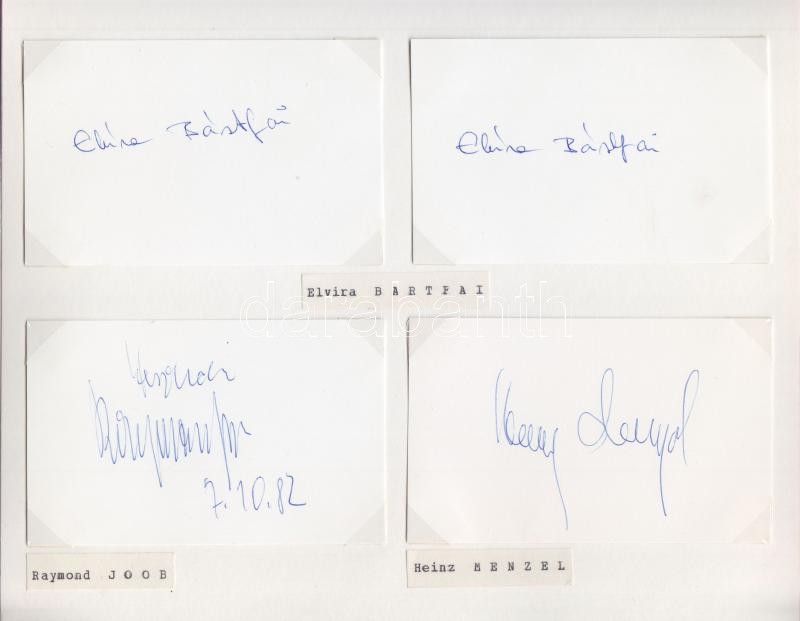 Elvira Bártfai
Elvira Bártfai
Elvira BARTFAI
darabanth
7.10.82
Raymond JOOB
Heinz MENZEL